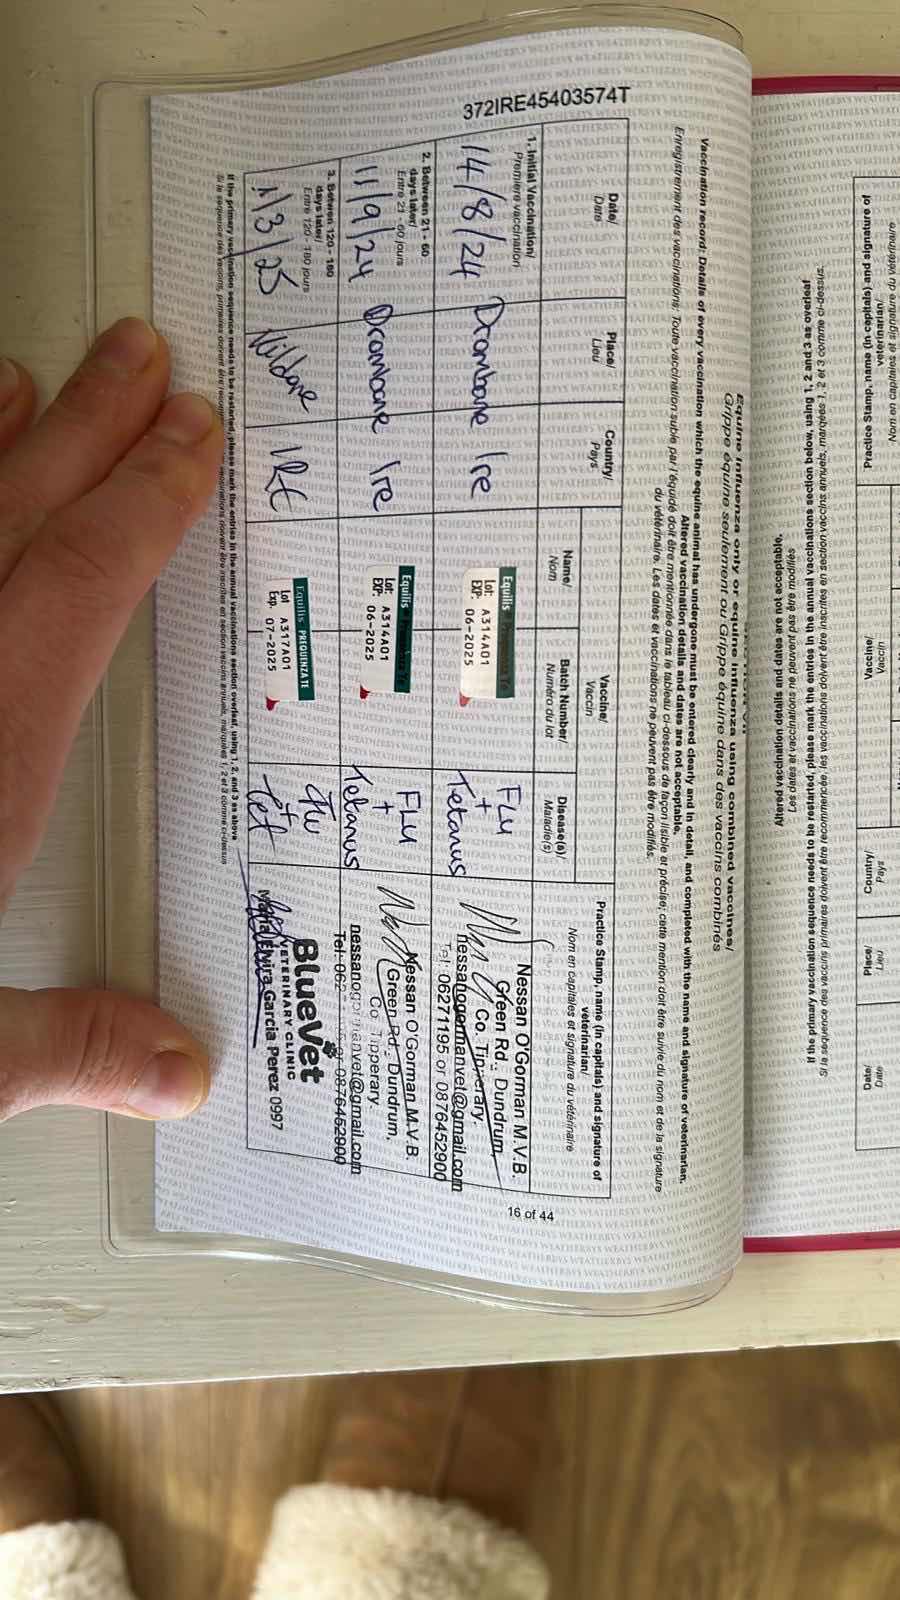 372IRE45403574T
Equine influenza only or equine influenza using combined vaccines/
Grippe équine seulement ou Grippe équine dans des vaccins combinés
Vaccination record: Details of every vaccination which the equine animal has undergone must be entered clearly and in detail, and completed with the name and signature of veterinarian.
Altered vaccination details and dates are not acceptable.
Enregistrement des vaccinations: Toute vaccination subie par l'équidé doit être mentionnée dans le tableau ci-dessous de façon lisible et précise; cette mention doit être suivie du nom et de la signature
du vétérinaire. Les dates et vaccinations ne peuvent pas être modifiés.
Date/
Date
Place/
Lieu
Country/
Pays
Vaccine/
Vaccin
Name/
Nom
Batch Number/
Numéro du lot
Disease(s)/
Maladie(s)
Practice Stamp, name (in capitals) and signature of
veterinarian/
Nom en capitales et signature du vétérinaire
1. Initial Vaccination/
Première vaccination
14/8/24 Drombane Ire
Equilis Prequenza Te
Lot: A314A01
EXP: 06-2025
FLU
+
Tetanus
Nessan O'Gorman M.V.B.
Green Rd., Dundrum,
Co. Tipperary.
nessanogormanvet@gmail.com
Tel: 06271195 or 0876452900
2. Between 21 - 60
days later/
Entre 21 - 60 jours
11/9/24 Drombane Ire
Equilis
Lot: A314A01
EXP: 06-2025
FLU
+
Tetanus
Nessan O'Gorman M.V.B.
Green Rd., Dundrum,
Co. Tipperary.
nessanogormanvet@gmail.com
or 0876452900
3. Between 120 - 180
days later/
Entre 120 - 180 jours
1/3/25 Kildare IRE
Equilis PREQUENZA TE
Lot A317A01
Exp. 07-2025
Flu
+
Tet
BlueVet
VETERINARY CLINIC
Maria Elvira Garcia Perez 0997
If the primary vaccination sequence needs to be restarted, please mark the entries in the annual vaccinations section overleaf, using 1, 2, and 3 as above
Si la séquence des vaccins primaires doivent être vaccinations doivent être inscrites en section vaccins annuels, marquées 1, 2 et 3 comme ci-dessus
16 of 44
Altered vaccination details and dates are not acceptable.
Les dates et vaccinations ne peuvent pas être modifiés
If the primary vaccination sequence needs to be restarted, please mark the entries in the annual vaccinations section below, using 1, 2 and 3 as overleaf
Si la séquence des vaccins primaires doivent être recommencée, les vaccinations doivent être inscrites en section vaccins annuels, marquées 1, 2 et 3 comme ci-dessus.
Date/
Date
Place/
Lieu
Country/
Pays
Vaccine/
Vaccin
Practice Stamp, name (in capitals) and signature of
veterinarian/
Nom en capitales et signature du vétérinaire